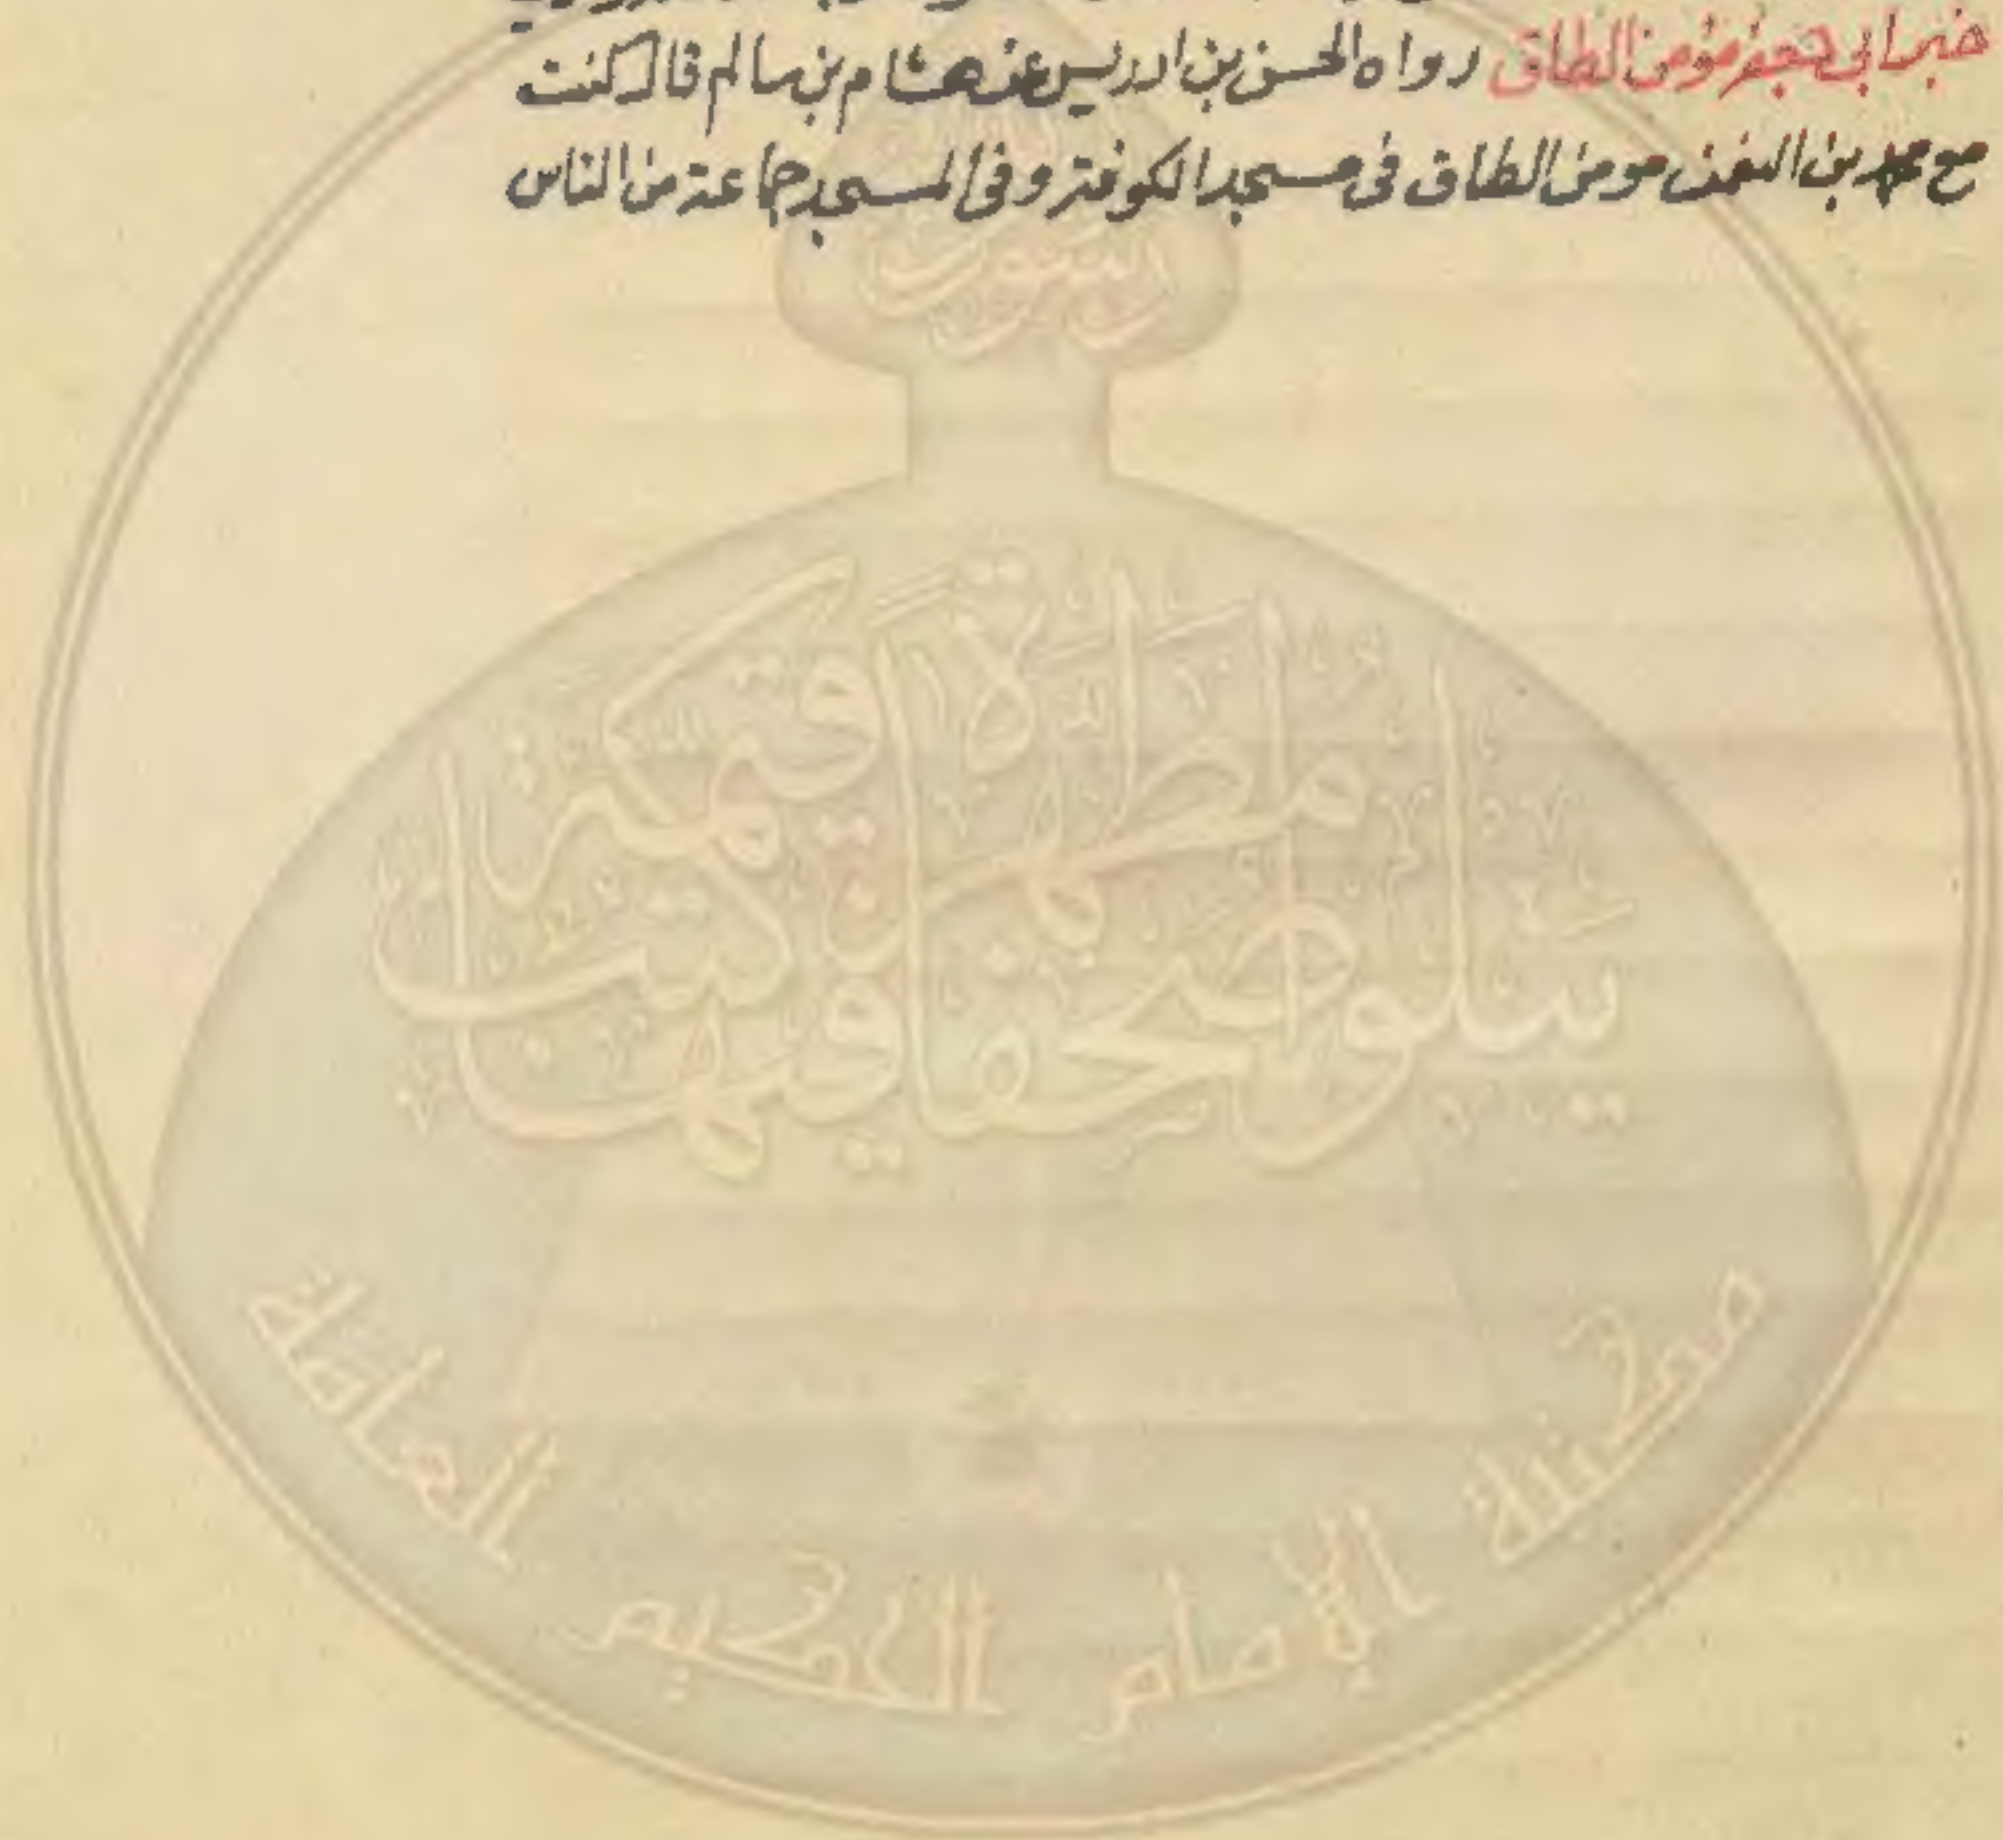 خبر ابي جعفر مؤمن الطاق رواه الحسن بن ادريس عن هشام بن سالم قال كنت
مع محمد بن النعمن مومن الطاق فى مسجد الكوفة وفى المسجد جماعة من الناس
يتلو صحفا مطهرة فيها كتب قيمة
مكتبة الإمام الحكيم العامة